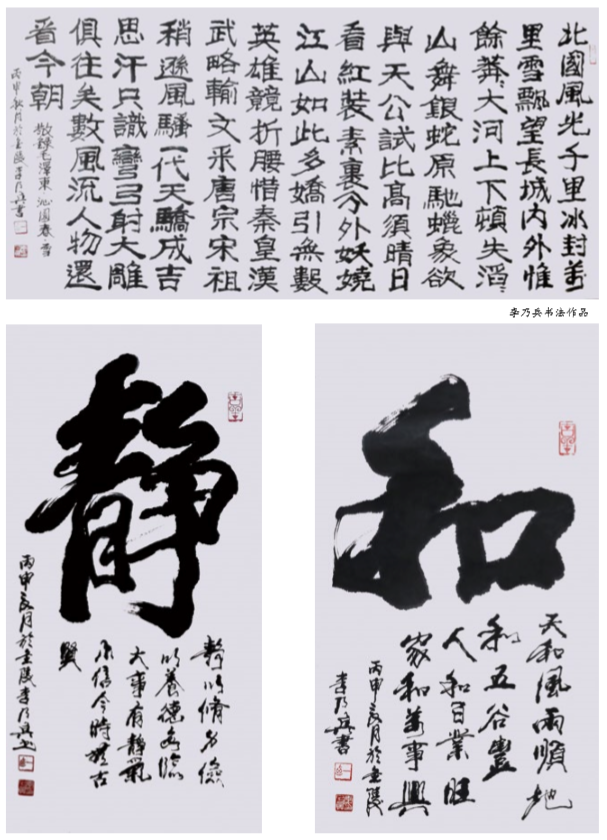 北國風光千里冰封萬
里雪飄望長城內外惟
餘莽〻大河上下頓失滔〻
山舞銀蛇原馳蠟象欲
與天公試比高須晴日
看紅裝素裹分外妖嬈
江山如此多嬌引無數
英雄競折腰惜秦皇漢
武略輸文采唐宗宋祖
稍遜風騷一代天驕成吉
思汗只識彎弓射大雕
俱往矣數風流人物還
看今朝
敬錄毛澤東沁園春雪
丙申秋月於金陵李乃兵書
李乃兵书法作品
靜
靜以脩身儉
以養德每臨
大事有靜氣
不信今時無古
賢
丙申夏月於金陵李乃兵書
和
天和風雨順地
和五谷豐
人和百業旺
家和萬事興
丙申夏月於金陵
李乃兵書